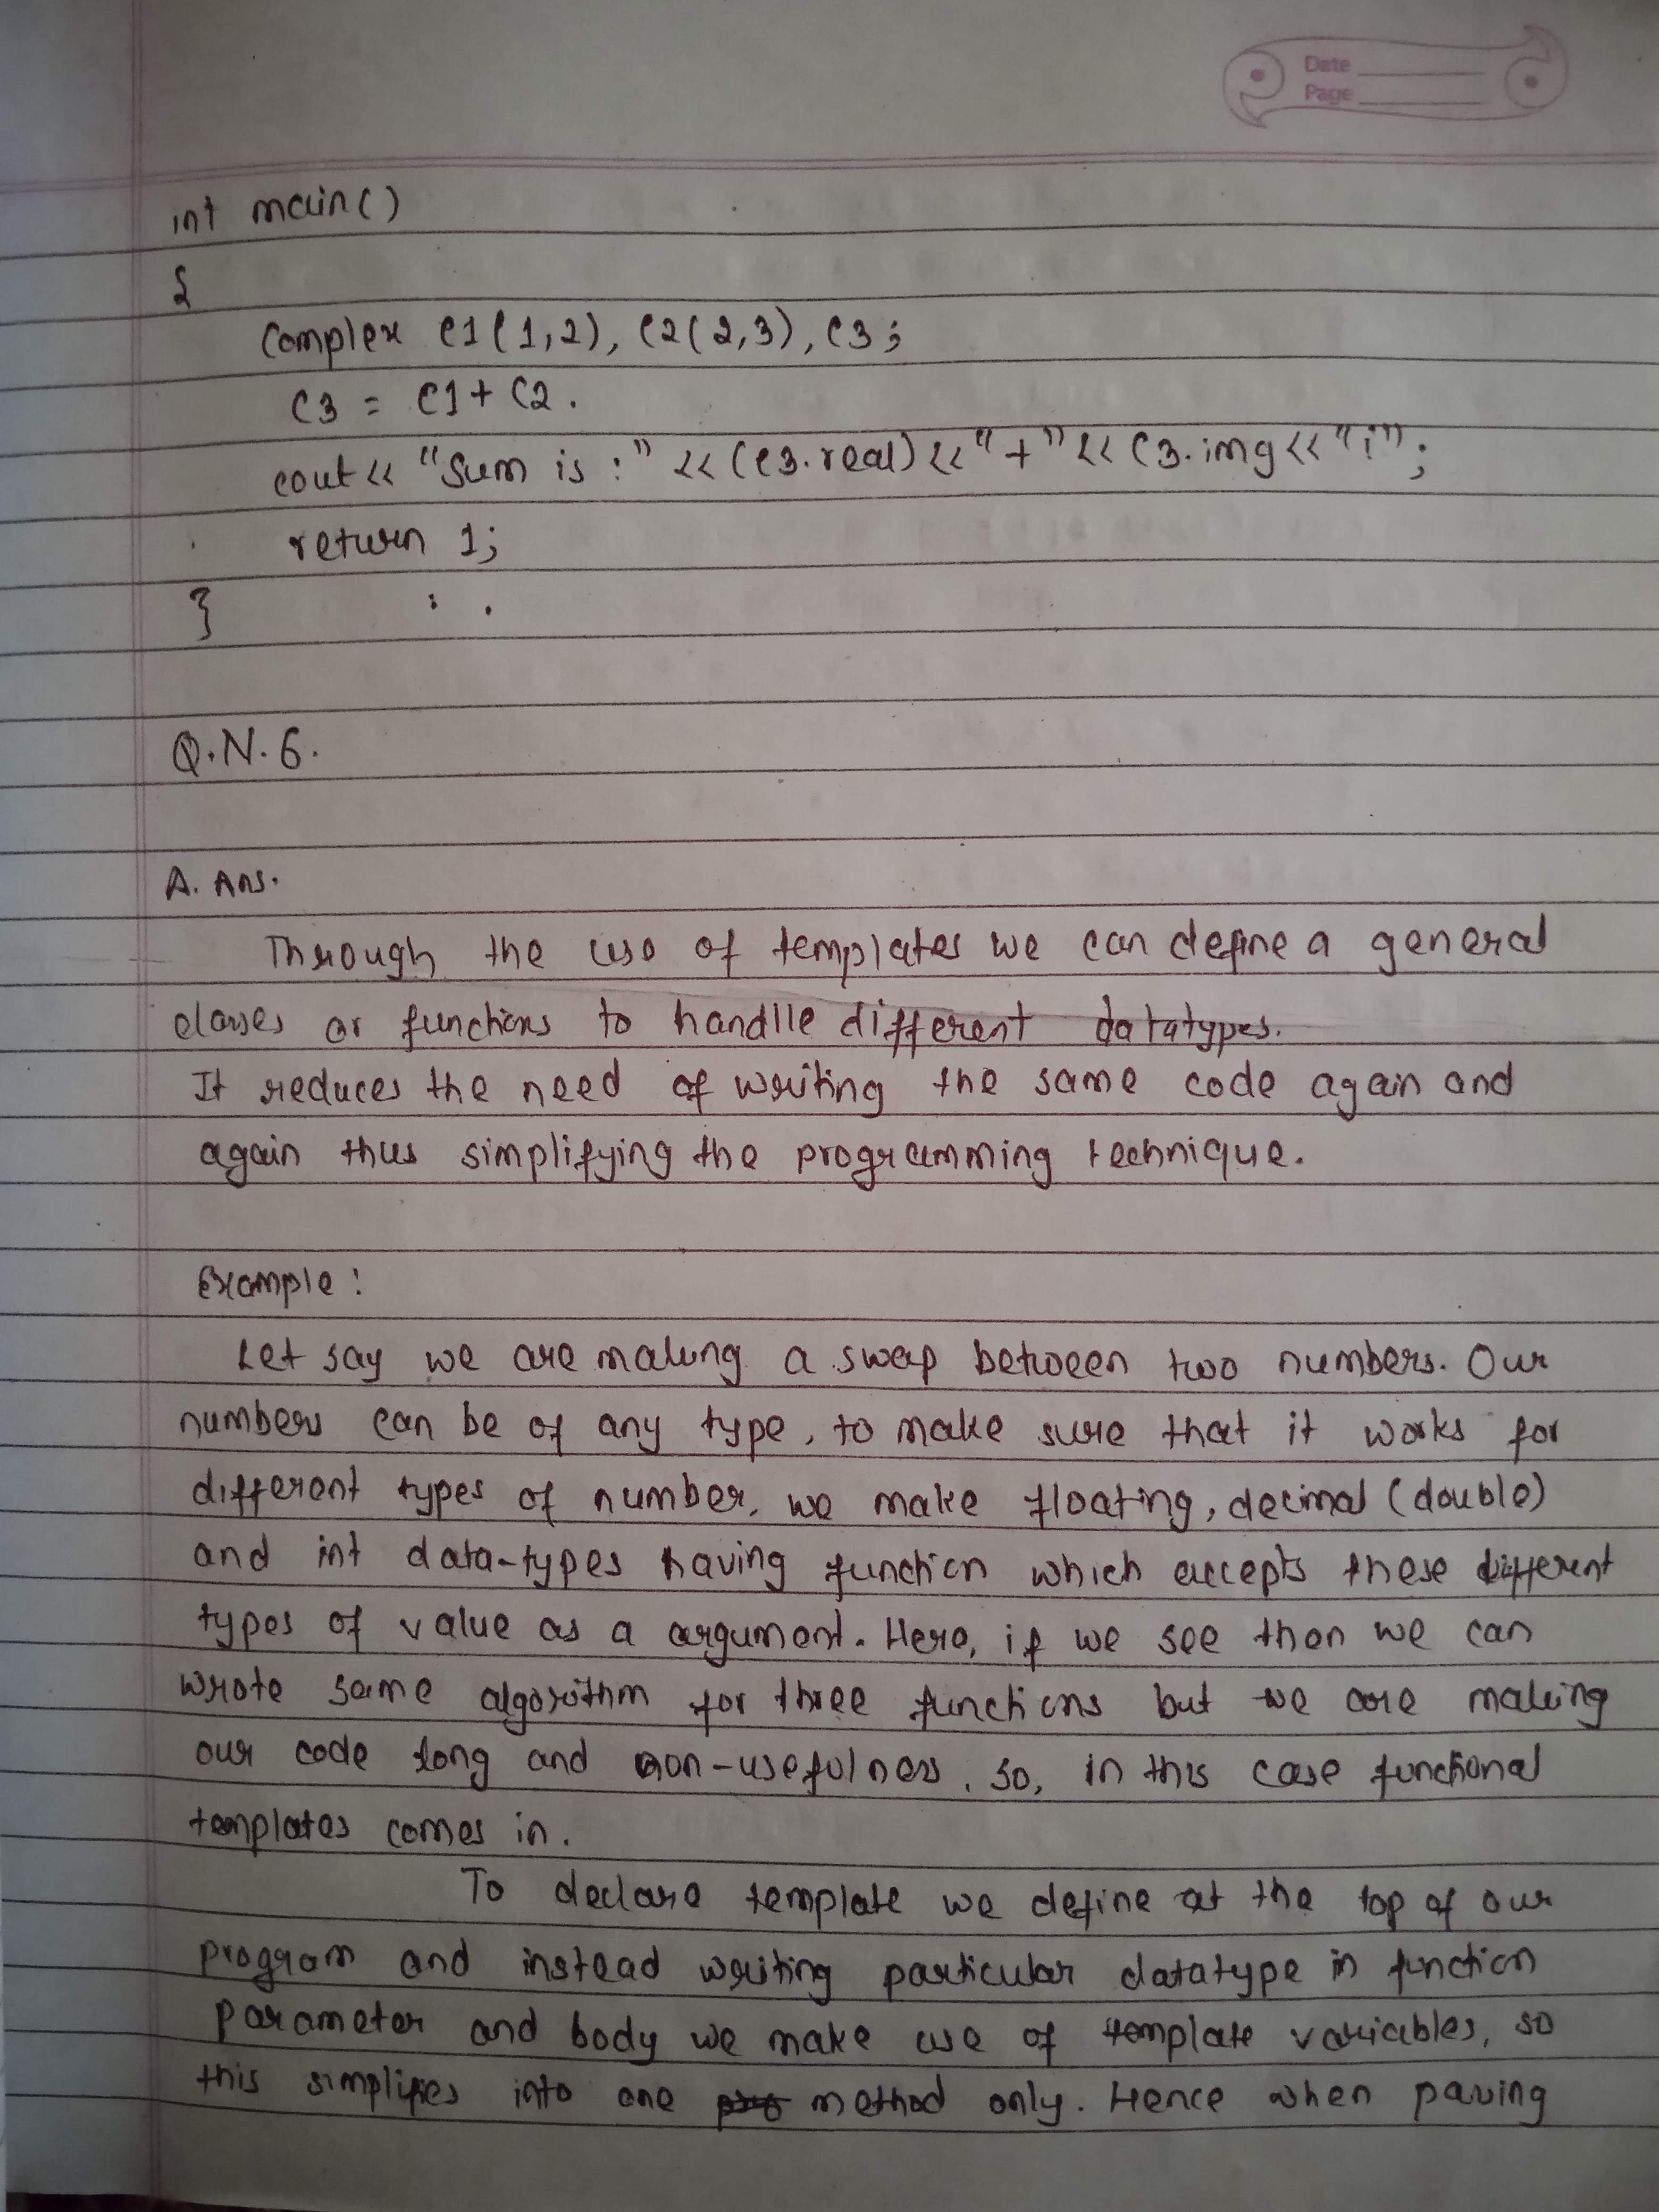 Date
Page
int main()
{
Complex C1(1,2), C2(2,3), C3;
C3 = C1 + C2.
cout << "Sum is :" << (C3.real) << "+" << C3.img << "i";
return 1;
}
Q.N.6.
A. Ans.
Through the use of templates we can define a general
classes or functions to handlle different datatypes.
It reduces the need of writing the same code again and
again thus simplifying the programming technique.
Example:
Let say we are making a swap between two numbers. Our
numbers can be of any type, to make sure that it works for
different types of number, we make floating, decimal (double)
and int data-types having function which accepts these different
types of value as a argument. Here, if we see then we can
wrote same algorithm for three functions but we are making
our code long and non-usefulness. So, in this case functional
templates comes in.
To declare template we define at the top of our
program and instead writing particular datatype in function
parameter and body we make use of template variables, so
this simplifies into one method only. Hence when